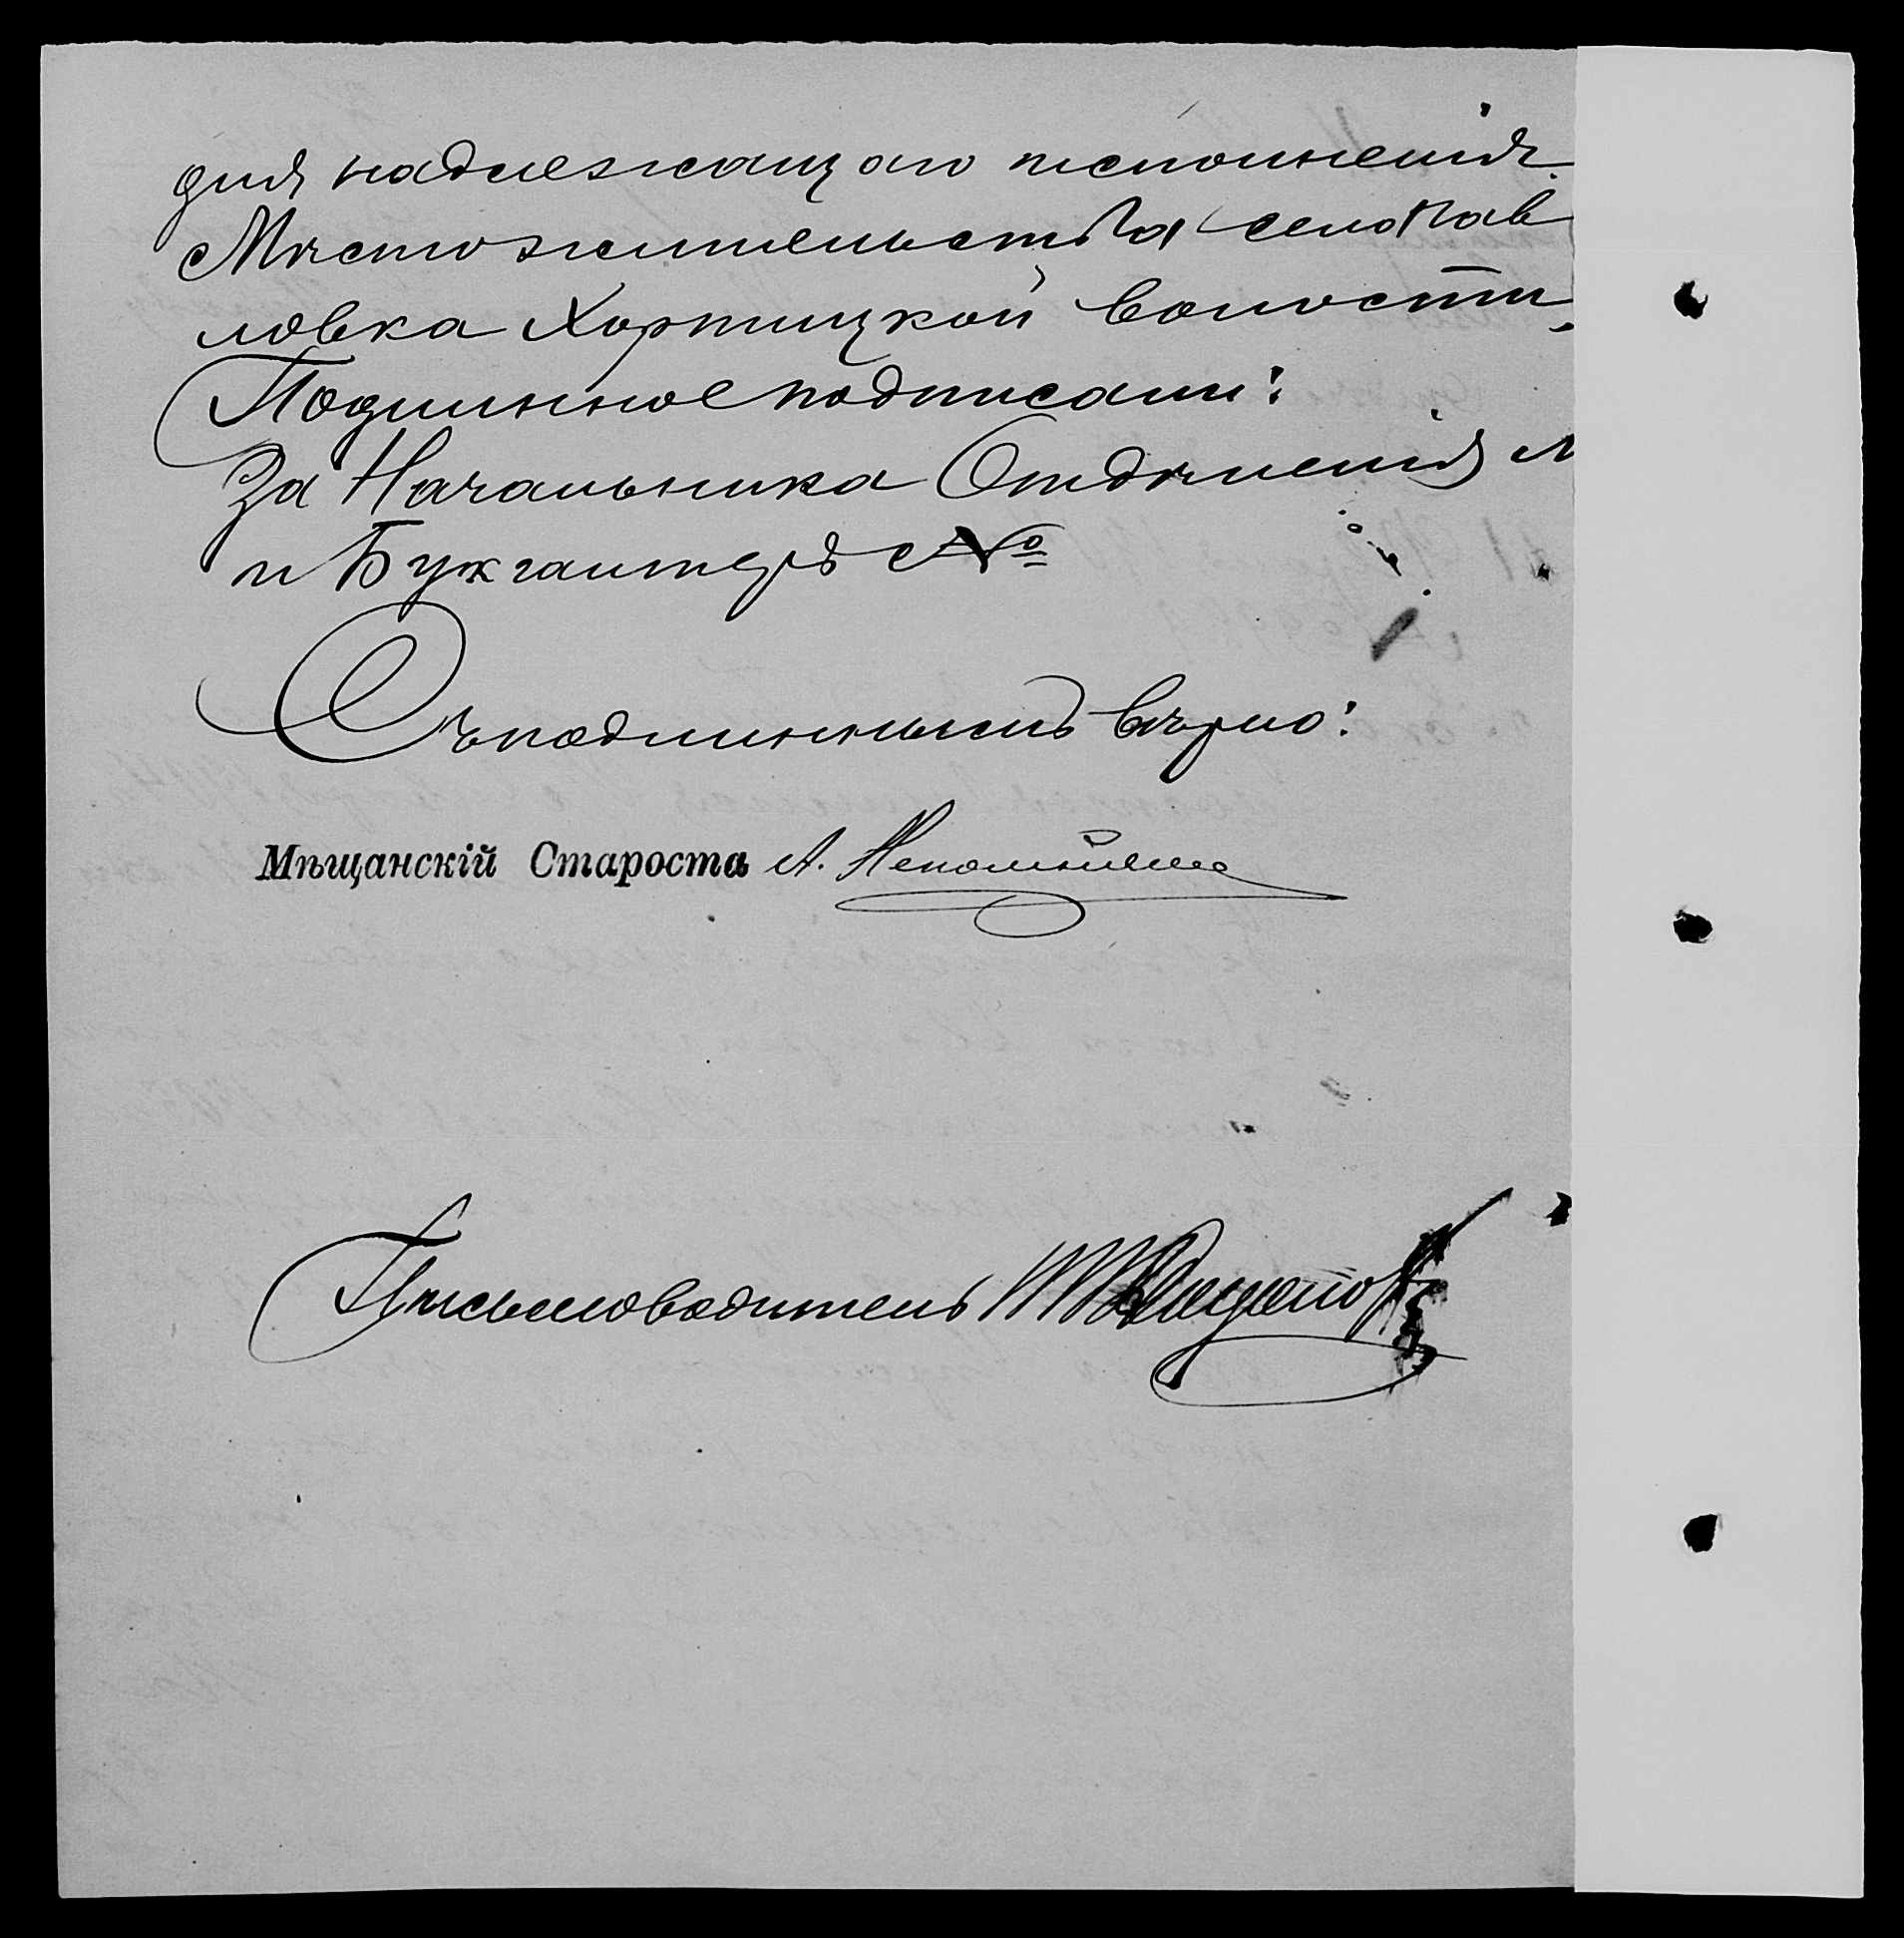 для надлежащаго исполненія.
Мѣстожительства село Пав
ловка Хортицкой волости,
Подлинное подписали:
За Начальника Отдѣленія
и Бухгалтеръ №
Съ подлиннымъ вѣрно:
Мѣщанскій Староста А.
Письмоводитель